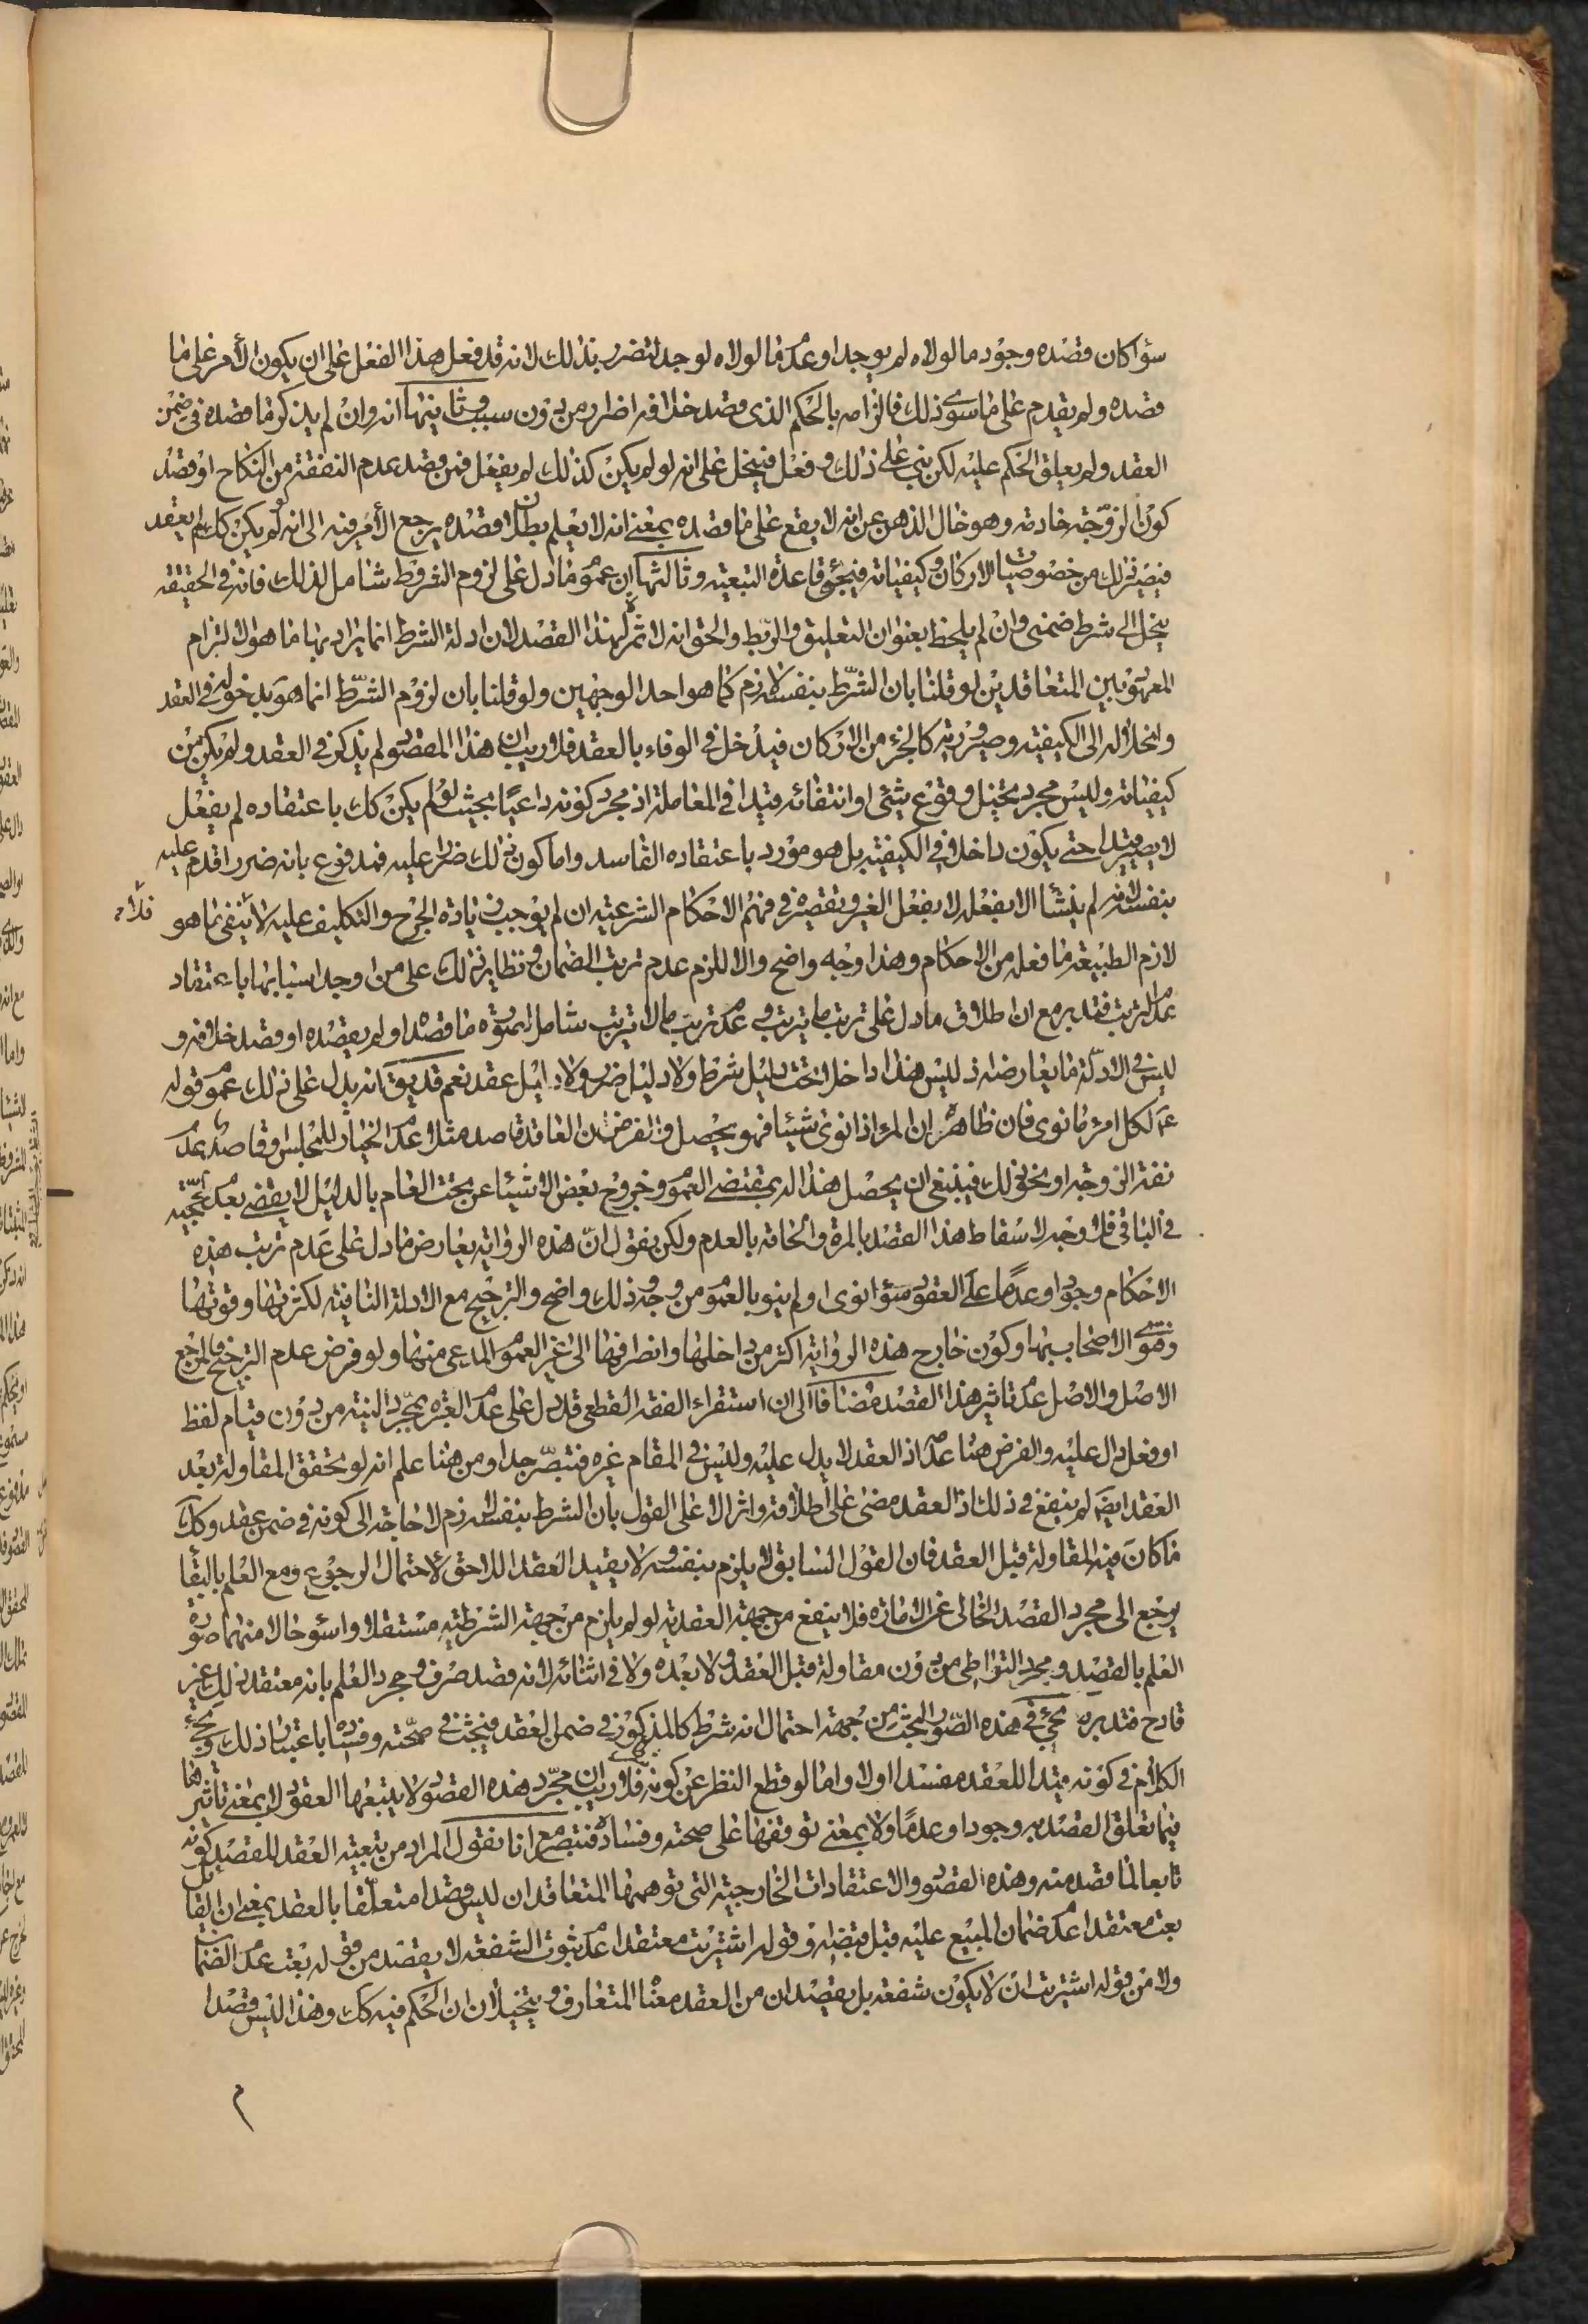 سواء كان قصده وجود ما لولاه لم يوجد او عدم ما لولاه لوجد لتضرر بذلك لانه قد فعل هذا الفعل على ان يكون الأمر على ما
قصده ولم يقدم على ما سوى ذلك فالزامه بالحكم الذى قصد خلافه اضرار من دون سبب وثانيتها انه وان لم يذكر ما قصده فى ضمن
العقد ولم يعلق الحكم عليه لكن بنى على ذلك وفعل فينحل على انه لو لم يكن كذلك لم يفعل فمن قصد عدم النفقة من النكاح او قصد
كون الزوجة خادمة وهو خال الذهن عن انه لا يقع على ما قصده بمعنى انه لا يعلم بطلان قصده يرجع الأمر فيه الى انه لو لم يكن كك لم يعقد
فيصير ذلك من خصوصيات الاركان وكيفياته فيجئ قاعدة التبعية وثالثتها ان عموم ما دل على لزوم الشروط شامل لذلك فانه فى الحقيقة
ينحل الى شرط ضمنى وان لم يلحظ بعنوان التعليق والربط والحق انه لا ثمرة لهذا القصد لان ادلة الشرط انما يراد بها ما هو الالتزام
المعهود بين المتعاقدين لو قلنا بان الشرط بنفسه لازم كما هو احد الوجهين ولو قلنا بان لزوم الشرط انما هو بدخوله فى العقد
وانحلاله الى الكيفية وصيرورته كالجزء من الاركان فيدخل فى الوفاء بالعقد فلا ريب ان هذا المقصود لم يذكر فى العقد ولم يكن من
كيفياته وليس مجرد تخيل وقوع شئ او انتفائه قيدا فى المعاملة اذ مجرد كونه داعيا بحيث لو لم يكن كك باعتقاده لم يفعل
لا يصير قيدا حتى يكون داخلا فى الكيفية بل هو مورد باعتقاده الفاسد واما كون ذلك ضررا عليه فمدفوع بانه ضرر اقدم عليه
بنفسه لانه لم ينشا الا بفعله لا بفعل الغير وتقصيره فى فهم الاحكام الشرعية ان لم يوجب زيادة الحرج والتكليف عليه لا ينفى ما هو
فلا
لازم الطبيعة ما فعله من الاحكام وهذا وجه واضح والا للزم عدم ترتب الضمان ونظاير ذلك على من اوجد اسبابها باعتقاد
عدم الترتب فتدبر مع ان اطلاق ما دل على ترتب ما يترتب وعدم ترتب ما لا يترتب شامل لصورة ما قصده او لم يقصده او قصد خلافه و
ليس فى الادلة ما يعارضه اذ ليس هذا داخلا تحت دليل شرط ولا دليل ضرر ولا دليل عقد نعم قد يقال انه يدل على ذلك عموم قوله
ع لكل امرء ما نوى فان ظاهره ان المرء اذا نوى شيئا فهو يحصل والفرض ان العاقد قاصد مثلا عدم الخيار للمجلس وقاصد عدم
نفقة الزوجة او نحو ذلك فينبغى ان يحصل هذا له بمقتضى العموم وخروج بعض الاشياء عن تحت العام بالدليل لا يقضى بعدم حجيته
فى الباقى فلا وجه لاسقاط هذا القصد بالمرة والحاقه بالعدم ولكن نقول ان هذه الرواية يعارض ما دل على عدم ترتب هذه
الاحكام وجودا وعدما على العقود سواء نوى او لم ينو بالعموم من وجه وذلك واضح والترجيح مع الادلة الثانية لكثرتها وقوتها
وفتوى الاصحاب بها وكون خارج هذه الرواية اكثر من داخلها وانصرافها الى غير العموم المدعى منها ولو فرض عدم الترجيح فالمرجع
الاصل والاصل عدم تاثير هذا القصد مضافا الى ان استقراء الفقه القطعى قد دل على عدم العبرة بمجرد النية من دون قيام لفظ
او فعل دال عليه والفرض هنا عدمه اذ العقد لا يدل عليه وليس فى المقام غيره فتبصر جدا ومن هنا علم انه لو تحقق المقاولة بعد
العقد ايضا لم ينفع فى ذلك اذ العقد مضى على اطلاقه واثر الا على القول بان الشرط بنفسه لازم لا حاجة الى كونه فى ضمن عقد وكك
ما كان فيه المقاولة قبل العقد فان القول السابق لا يلزم بنفسه ولا يقيد العقد اللاحق لاحتمال الرجوع ومع العلم بالبقاء
يرجع الى مجرد القصد الخالى عن الامارة فلا ينفع من جهة العقدية لو لم يلزم من جهة الشرطية مستقلا واسوء حالا منهما صورة
العلم بالقصد ومجرد التواطى من دون مقاولة قبل العقد ولا بعده ولا فى اثنائه لانه قصد صرف ومجرد العلم بانه معتقد ذلك غير
قادح فتدبر نعم يجئ فى هذه الصور البحث من جهة احتمال انه شرط كالمذكور فى ضمن العقد فيبحث فى صحته وفساده باعتبار ذلك ويجئ
الكلام فى كونه مفيدا للعقد مفسدا اولا واما لو قطع النظر عن كونه شرطا فلا ريب ان مجرد هذه القصود لا يتبعها العقود لا بمعنى تاثيرها
فيما تعلق القصد به وجودا وعدما ولا بمعنى توقفها على صحته وفساده فتبصر مع انا نقول المراد من تبعية العقد للقصد كونه
تابعا لما قصد منه وهذه القصود والاعتقادات الخارجية التى توهمها المتعاقدان ليس قصدا متعلقا بالعقد بمعنى ان القائل
بعت معتقدا عدم ضمان المبيع عليه قبل قبضه وقوله اشتريت معتقدا عدم ثبوت الشفعة لا يقصد من قوله بعت عدم الضمان
ولا من قوله اشتريت ان لا يكون شفعة بل يقصدان من العقد معناه المتعارف ويتخيلان ان الحكم فيه كك وهذا ليس قصدا